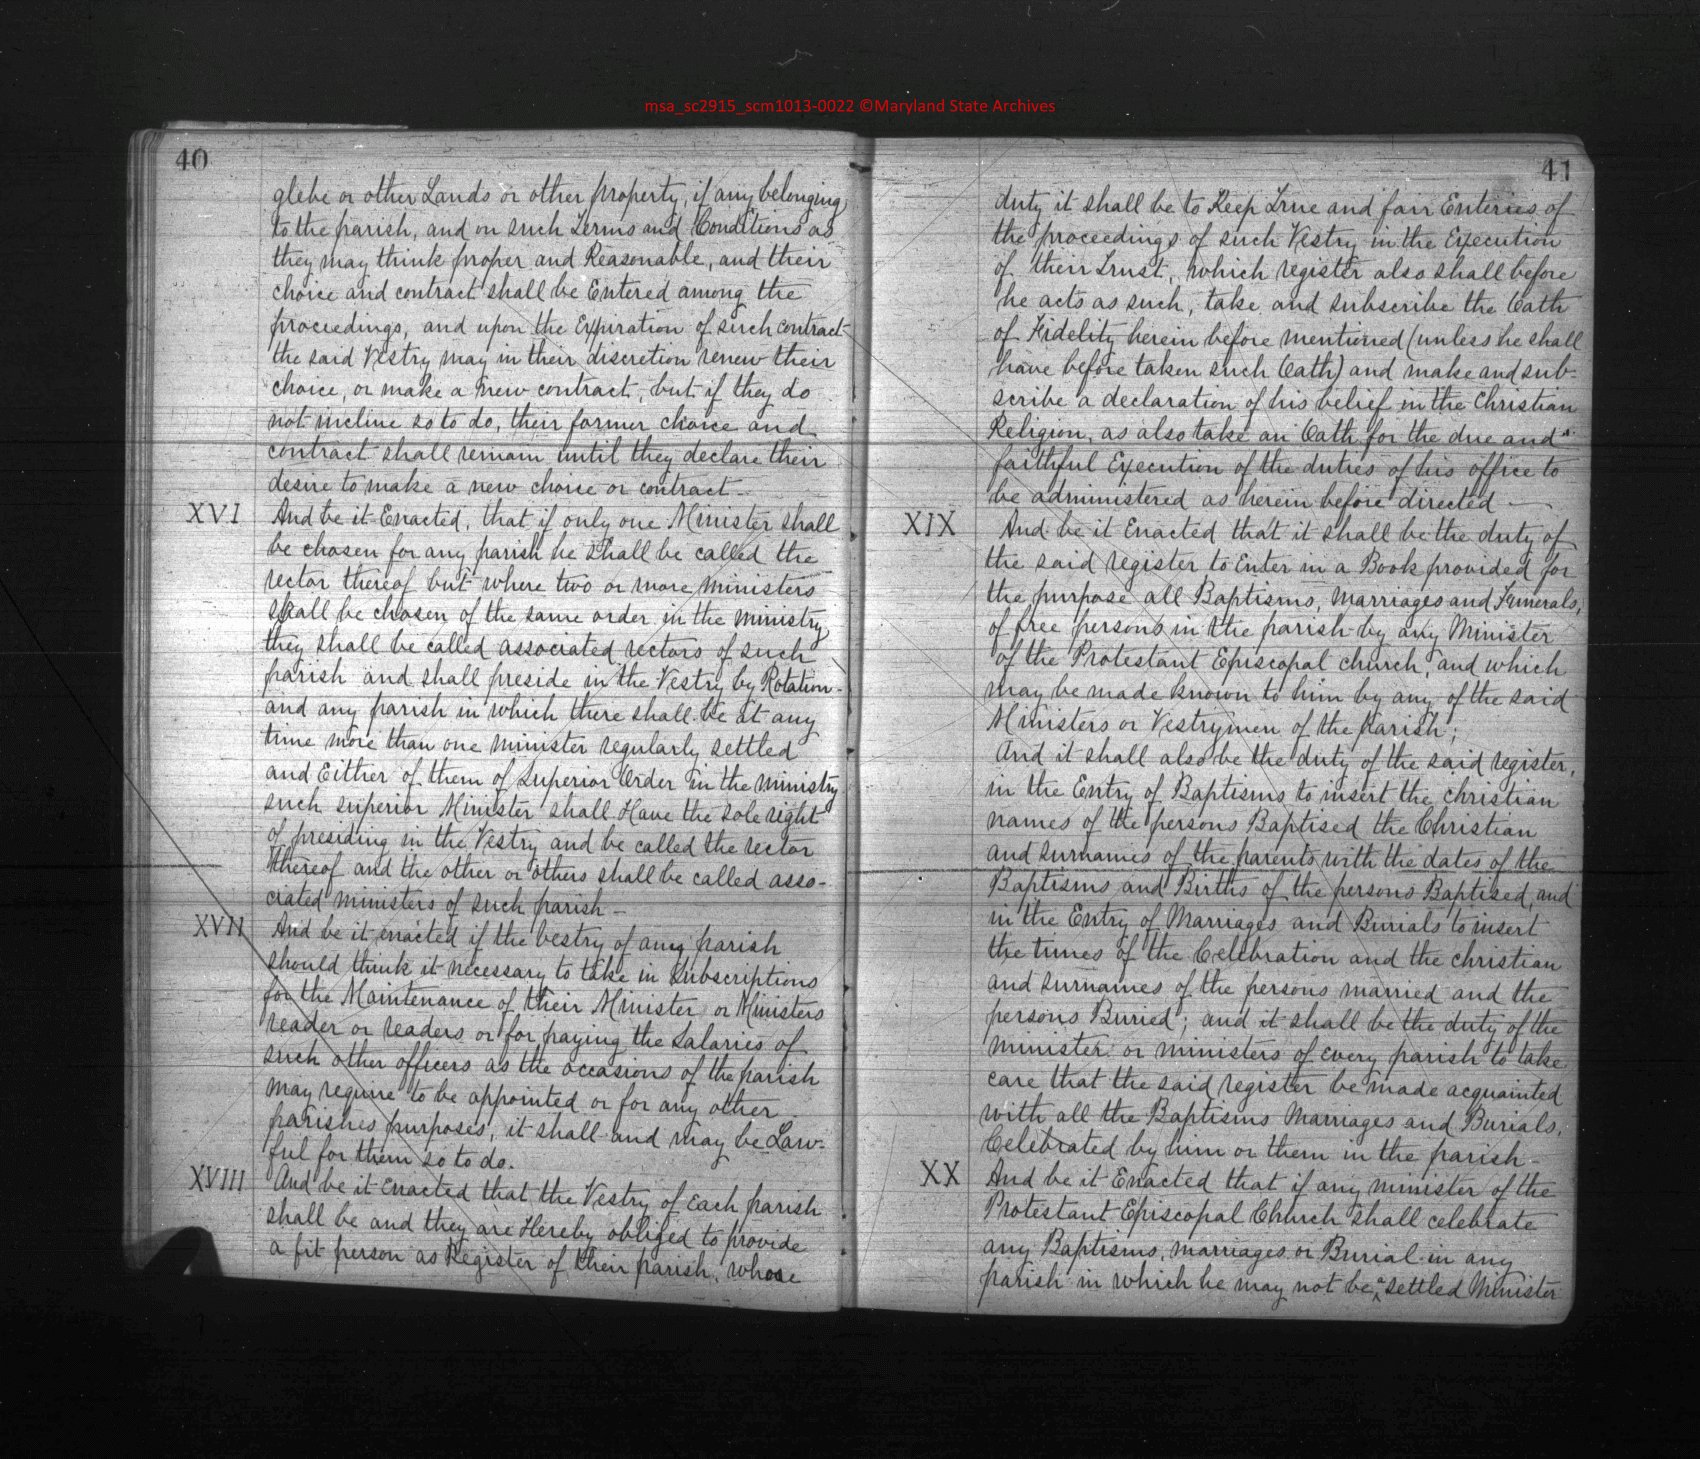 msa_sc2915_scm1013-0022 ©Maryland State Archives
40
glebe or other Lands or other property, if any belonging
to the parish, and on such Terms and Conditions as
they may think proper and Reasonable, and their
choice and contract shall be Entered among the
proceedings, and upon the Expiration of such contract
the said Vestry may in their discretion renew their
choice, or make a new contract, but if they do
not incline so to do, their former choice and
contract shall remain until they declare their
desire to make a new choice or contract -
XVI And be it Enacted, that if only one Minister shall
be chosen for any parish he shall be called the
rector thereof but where two or more Ministers
shall be chosen of the same order in the ministry
they shall be called associated rectors of such
parish and shall preside in the Vestry by Rotation -
and any parish in which there shall be at any
time more than one minister regularly settled
and Either of them of Superior Order in the ministry
such superior Minister shall Have the sole right
of presiding in the Vestry and be called the rector
thereof and the other or others shall be called asso-
ciated ministers of such parish -
XVII And be it enacted if the vestry of any parish
should think it necessary to take in Subscriptions
for the Maintenance of their Minister or Ministers
reader or readers or for paying the Salaries of
such other officers as the occasions of the parish
may require to be appointed or for any other
parishes purposes, it shall and may be Law-
ful for them so to do.
XVIII And be it enacted that the Vestry of Each parish
shall be and they are Hereby obliged to provide
a fit person as Register of their parish, whose
41
duty it shall be to Keep True and fair Enteries of
the proceedings of such Vestry in the Execution
of their Trust, which register also shall before
he acts as such, take and subscribe the Oath
of Fidelity herein before mentioned (unless he shall
have before taken such Oath) and make and sub-
scribe a declaration of his belief in the Christian
Religion, as also take an Oath for the due and
faithful Execution of the duties of his office to
be administered as herein before directed -
XIX And be it Enacted that it shall be the duty of
the said register to Enter in a Book provided for
the purpose all Baptisms, Marriages and Funerals,
of free persons in the parish by any Minister
of the Protestant Episcopal church, and which
may be made known to him by any of the said
Ministers or Vestrymen of the parish;
And it shall also be the duty of the said register,
in the Entry of Baptisms to insert the christian
names of the persons Baptised the Christian
and surnames of the parents with the dates of the
Baptisms and Births of the persons Baptised, and
in the Entry of Marriages and Burials to insert
the times of the Celebration and the christian
and surnames of the persons married and the
persons Buried; and it shall be the duty of the
minister or ministers of every parish to take
care that the said register be made acquainted
with all the Baptisms Marriages and Burials,
Celebrated by him or them in the parish -
XX And be it Enacted that if any minister of the
Protestant Episcopal Church shall celebrate
any Baptisms, marriages or Burial in any
parish in which he may not be ^a settled Minister